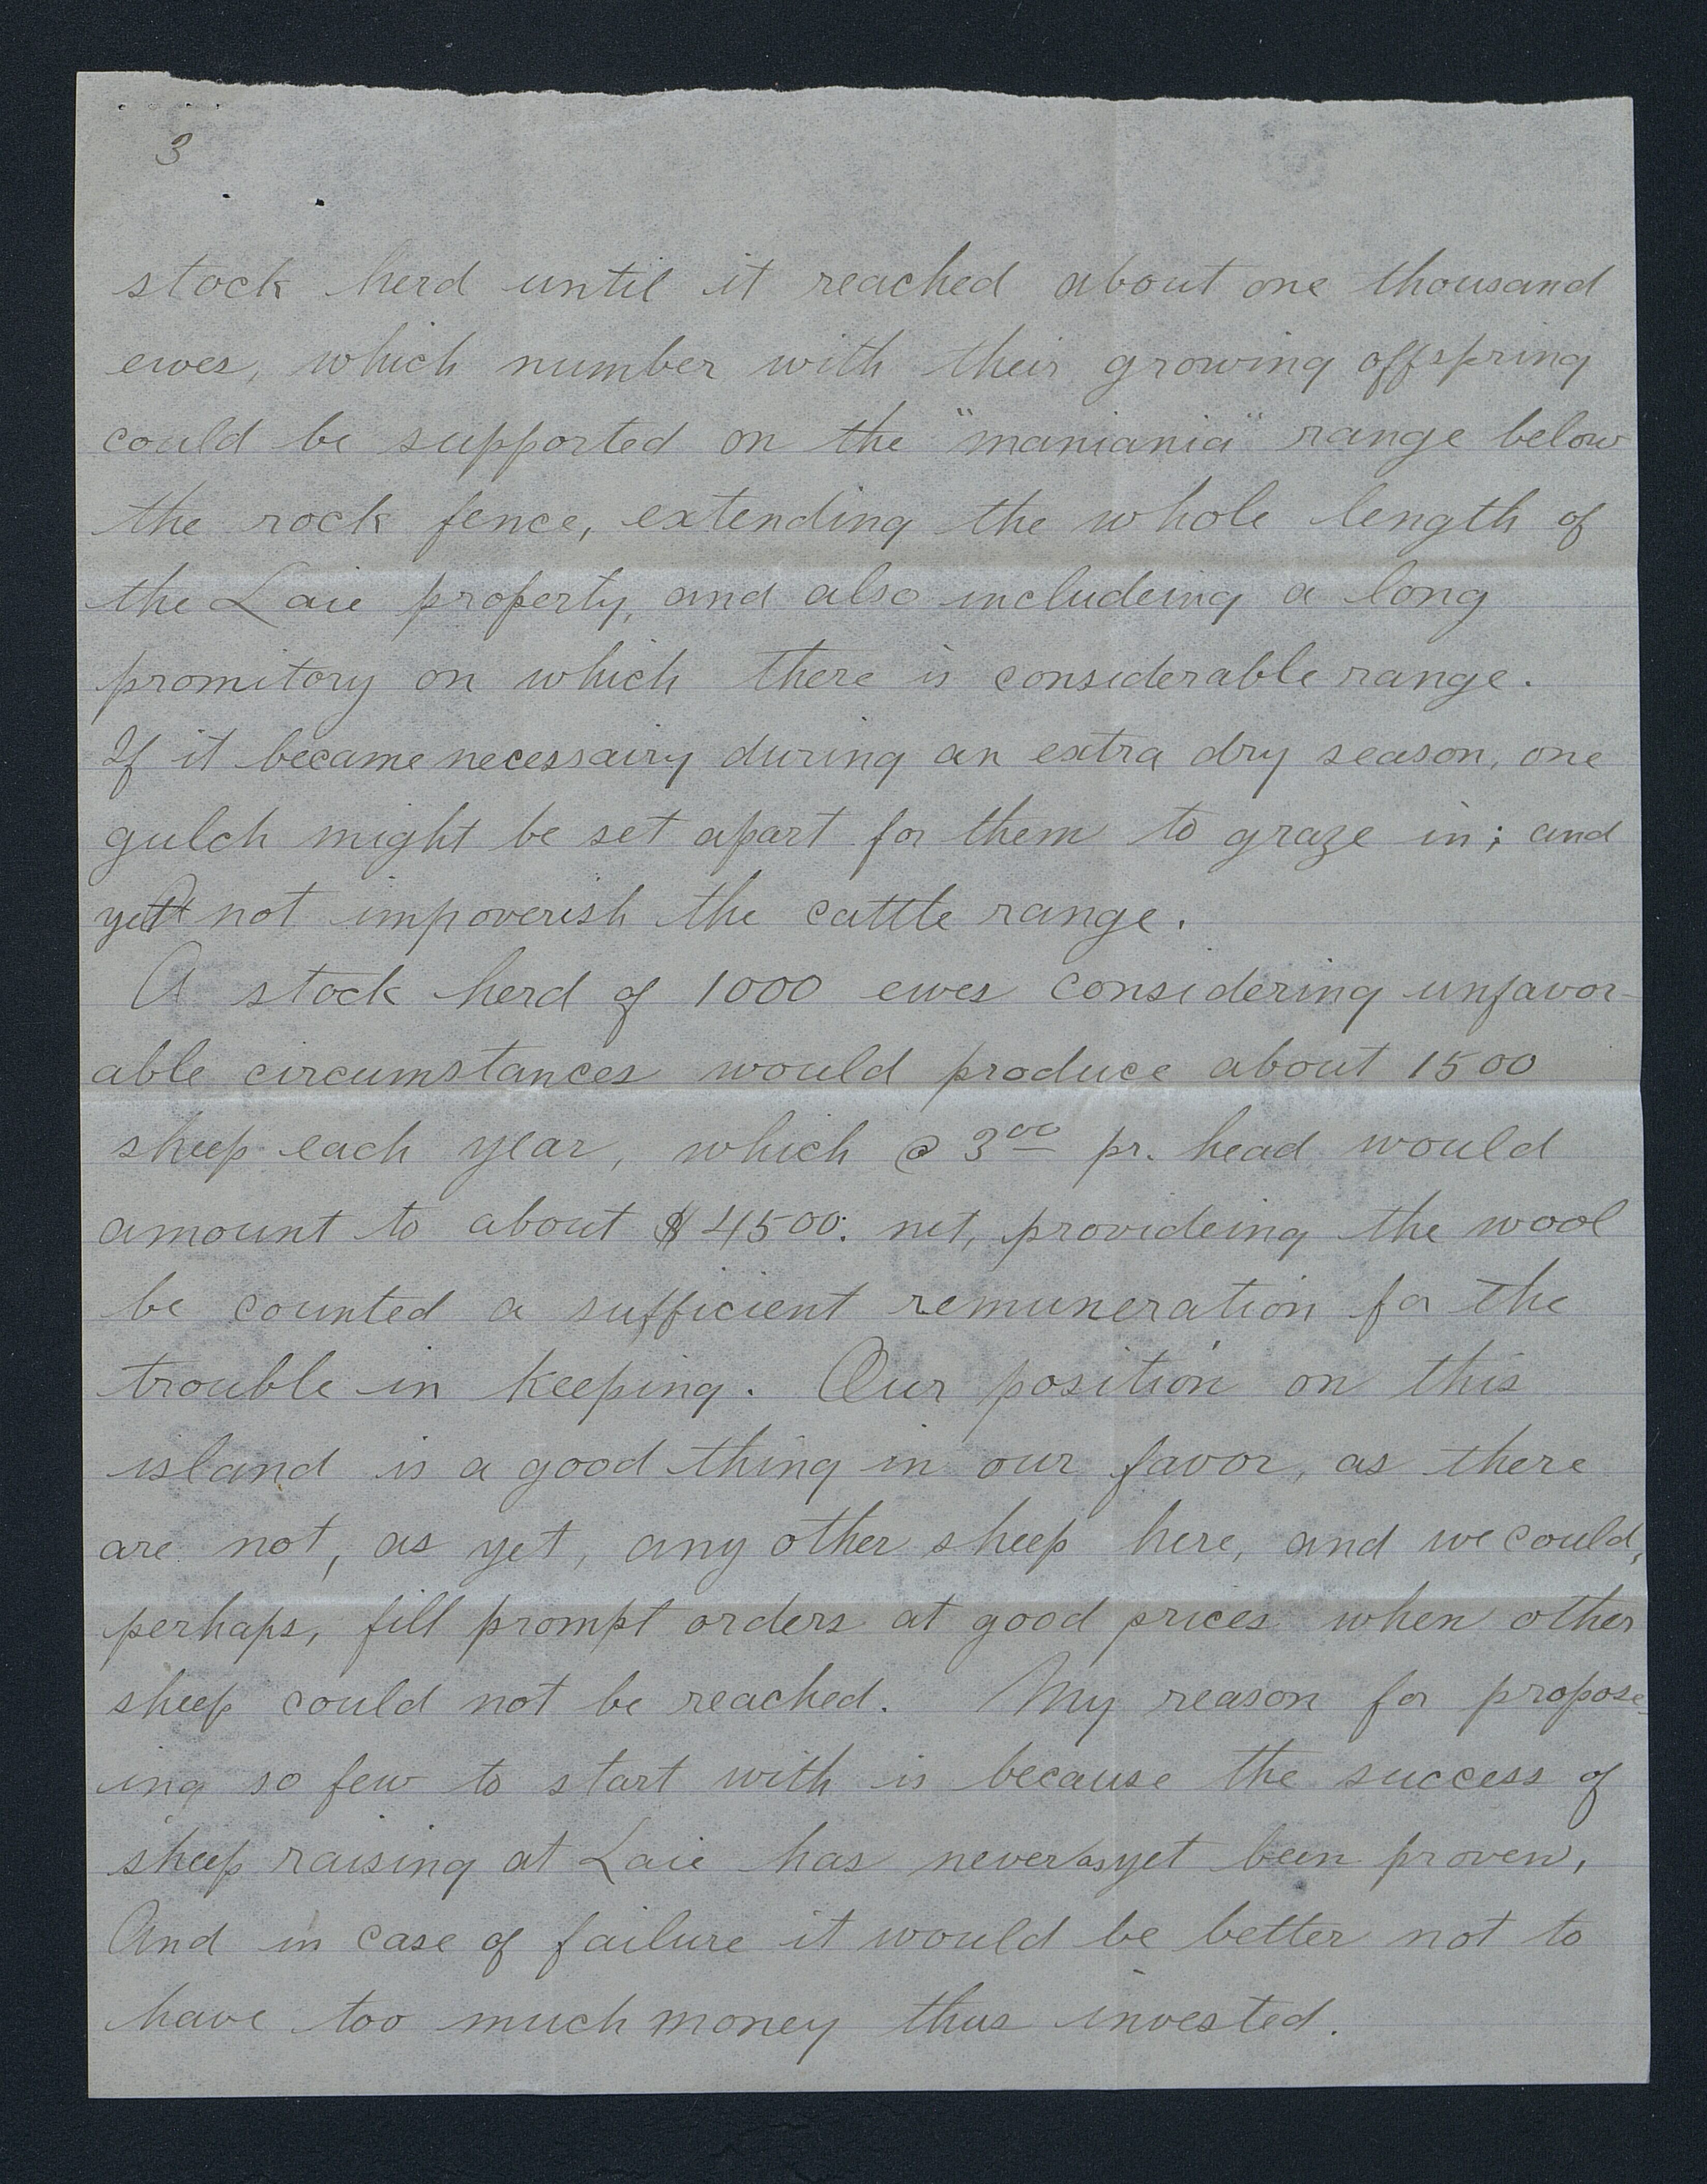 3
stock herd until it reached about one thousand
ewes, which number with their growing offspring
could be supported on the "maniania" range below
the rock fence, extending the whole length of
the Laie property, and also includeing a long
promitory on which there is considerable range.
If it became necessairy during an extra dry season, one
gulch might be set apart for them to graze in; and
yet not impoverish the cattle range.
A stock herd of 1000 ewes considering unfavor-
able circumstances would produce about 1500
sheep each year, which @ 300 pr. head would
amount to about $4500. net, provideing the wool
be counted a sufficient remuneration for the
trouble in keeping. Our position on this
island is a good thing in our favor, as there
are not, as yet, any other sheep here, and we could,
perhaps, fill prompt orders at good prices when other
sheep could not be reached. My reason for propose-
ing so few to start with is because the success of
sheep raising at Laie has never as yet been proven,
And in case of failure it would be better not to
have too much money thus invested.